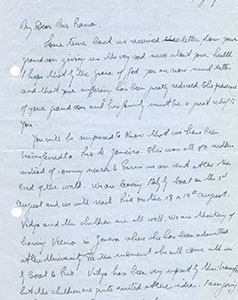 My Dear Mrs Rana.
Some time back we received letter from your
grandson giving us the very sad news about your health
I hope that by the grace of God you are now much better
and that your suffering has been greatly reduced. The presence
of your grandson and his family must be a great relief to
you.
You will be surprised to know that we have been
transferred to Rio de Janeiro. This was all of sudden
instead of coming nearer to Paris we are sent at the other
end of the world. We are leaving by boat on the 3rd
August and we will reach Rio on the 18 or 19th August.
Vidya and the children are all well. We are thinking of
leaving Veena in Geneva where she has been admitted
at the University. For the moment she will come with us
by Boat to Rio. Vidya has been very upset by this transfer
but the children are quite excited at the idea. I am going